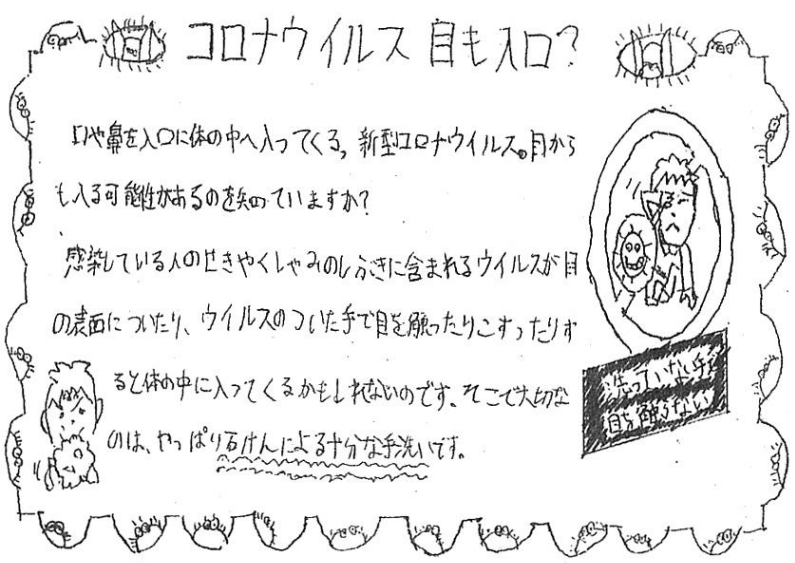 コロナウイルス 目も入口?
口や鼻を入口に体の中へ入ってくる、新型コロナウイルス。目から
も入る可能性があるのを知っていますか?
感染している人のせきやくしゃみのしぶきに含まれるウイルスが目
の表面についたり、ウイルスのついた手で目を触ったりこすったりす
ると体の中に入ってくるかもしれないのです。そこで大切な
のは、やっぱり石けんによる十分な手洗いです。
洗っていない手で
目を触らない